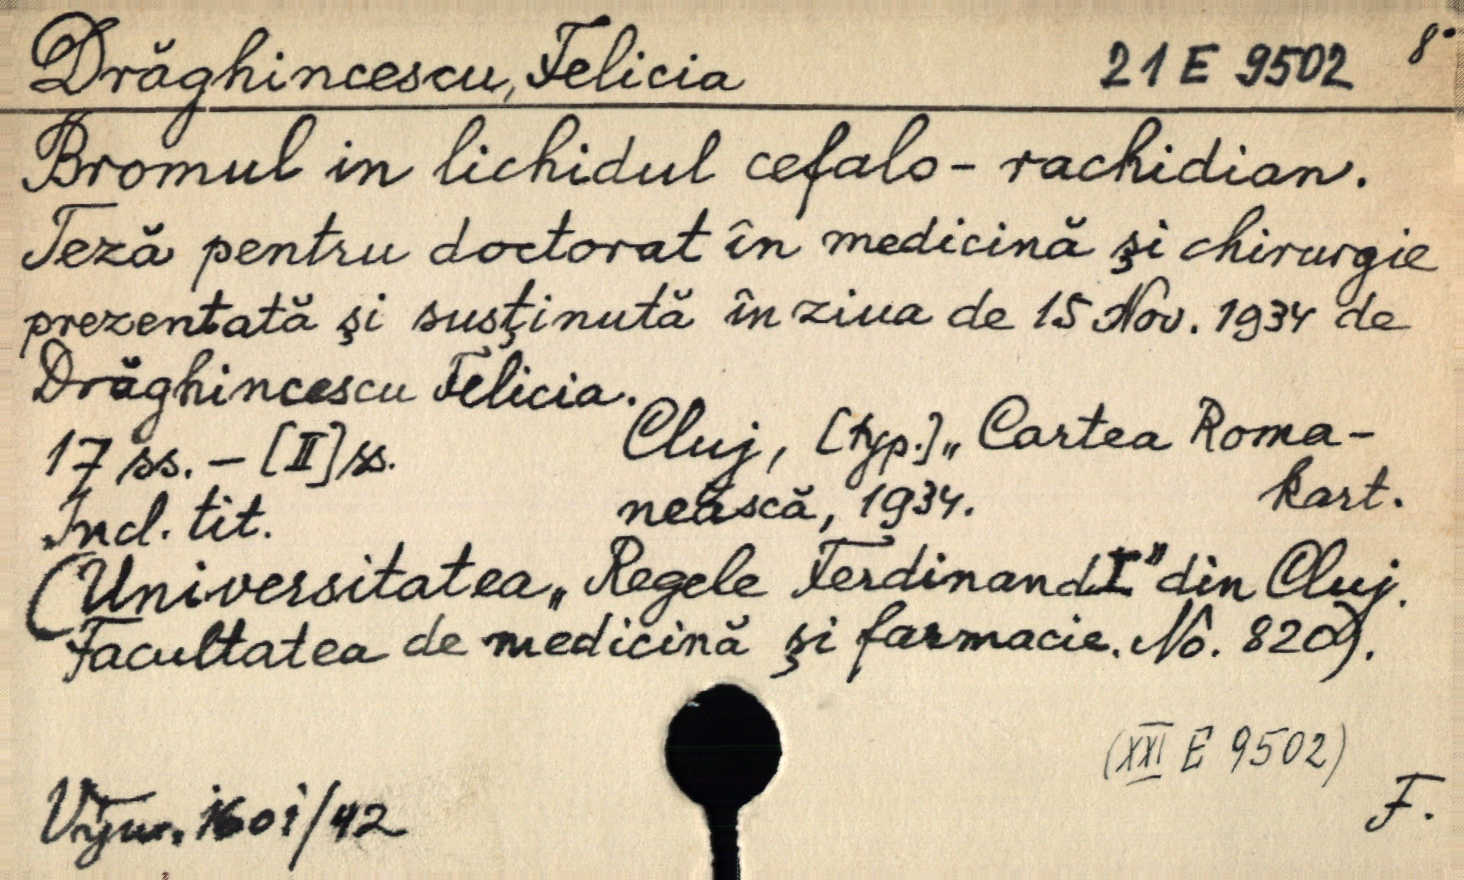 Drăghincescu, Felicia 21 E 9502 8°
Bromul in lichidul cefalo-rachidian.
Teză pentru doctorat în medicină şi chirurgie
prezentată şi susţinută în ziua de 15 Nov. 1934 de
Drăghincescu Felicia.
17 ss. – [II] ss. Cluj, [typ.] „Cartea Roma-
nească, 1934. kart.
Incl. tit.
(Universitatea „Regele Ferdinand I" din Cluj.
Facultatea de medicină şi farmacie. No. 820).
(XXI E 9502)
F.
1601/42